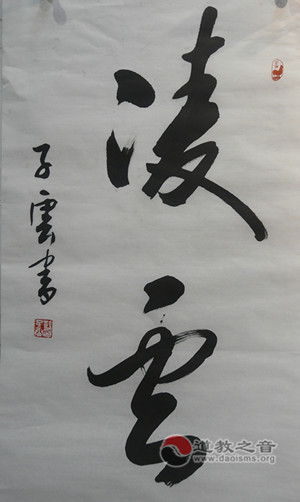 凌云
子雲書
道教之音
www.daoisms.org